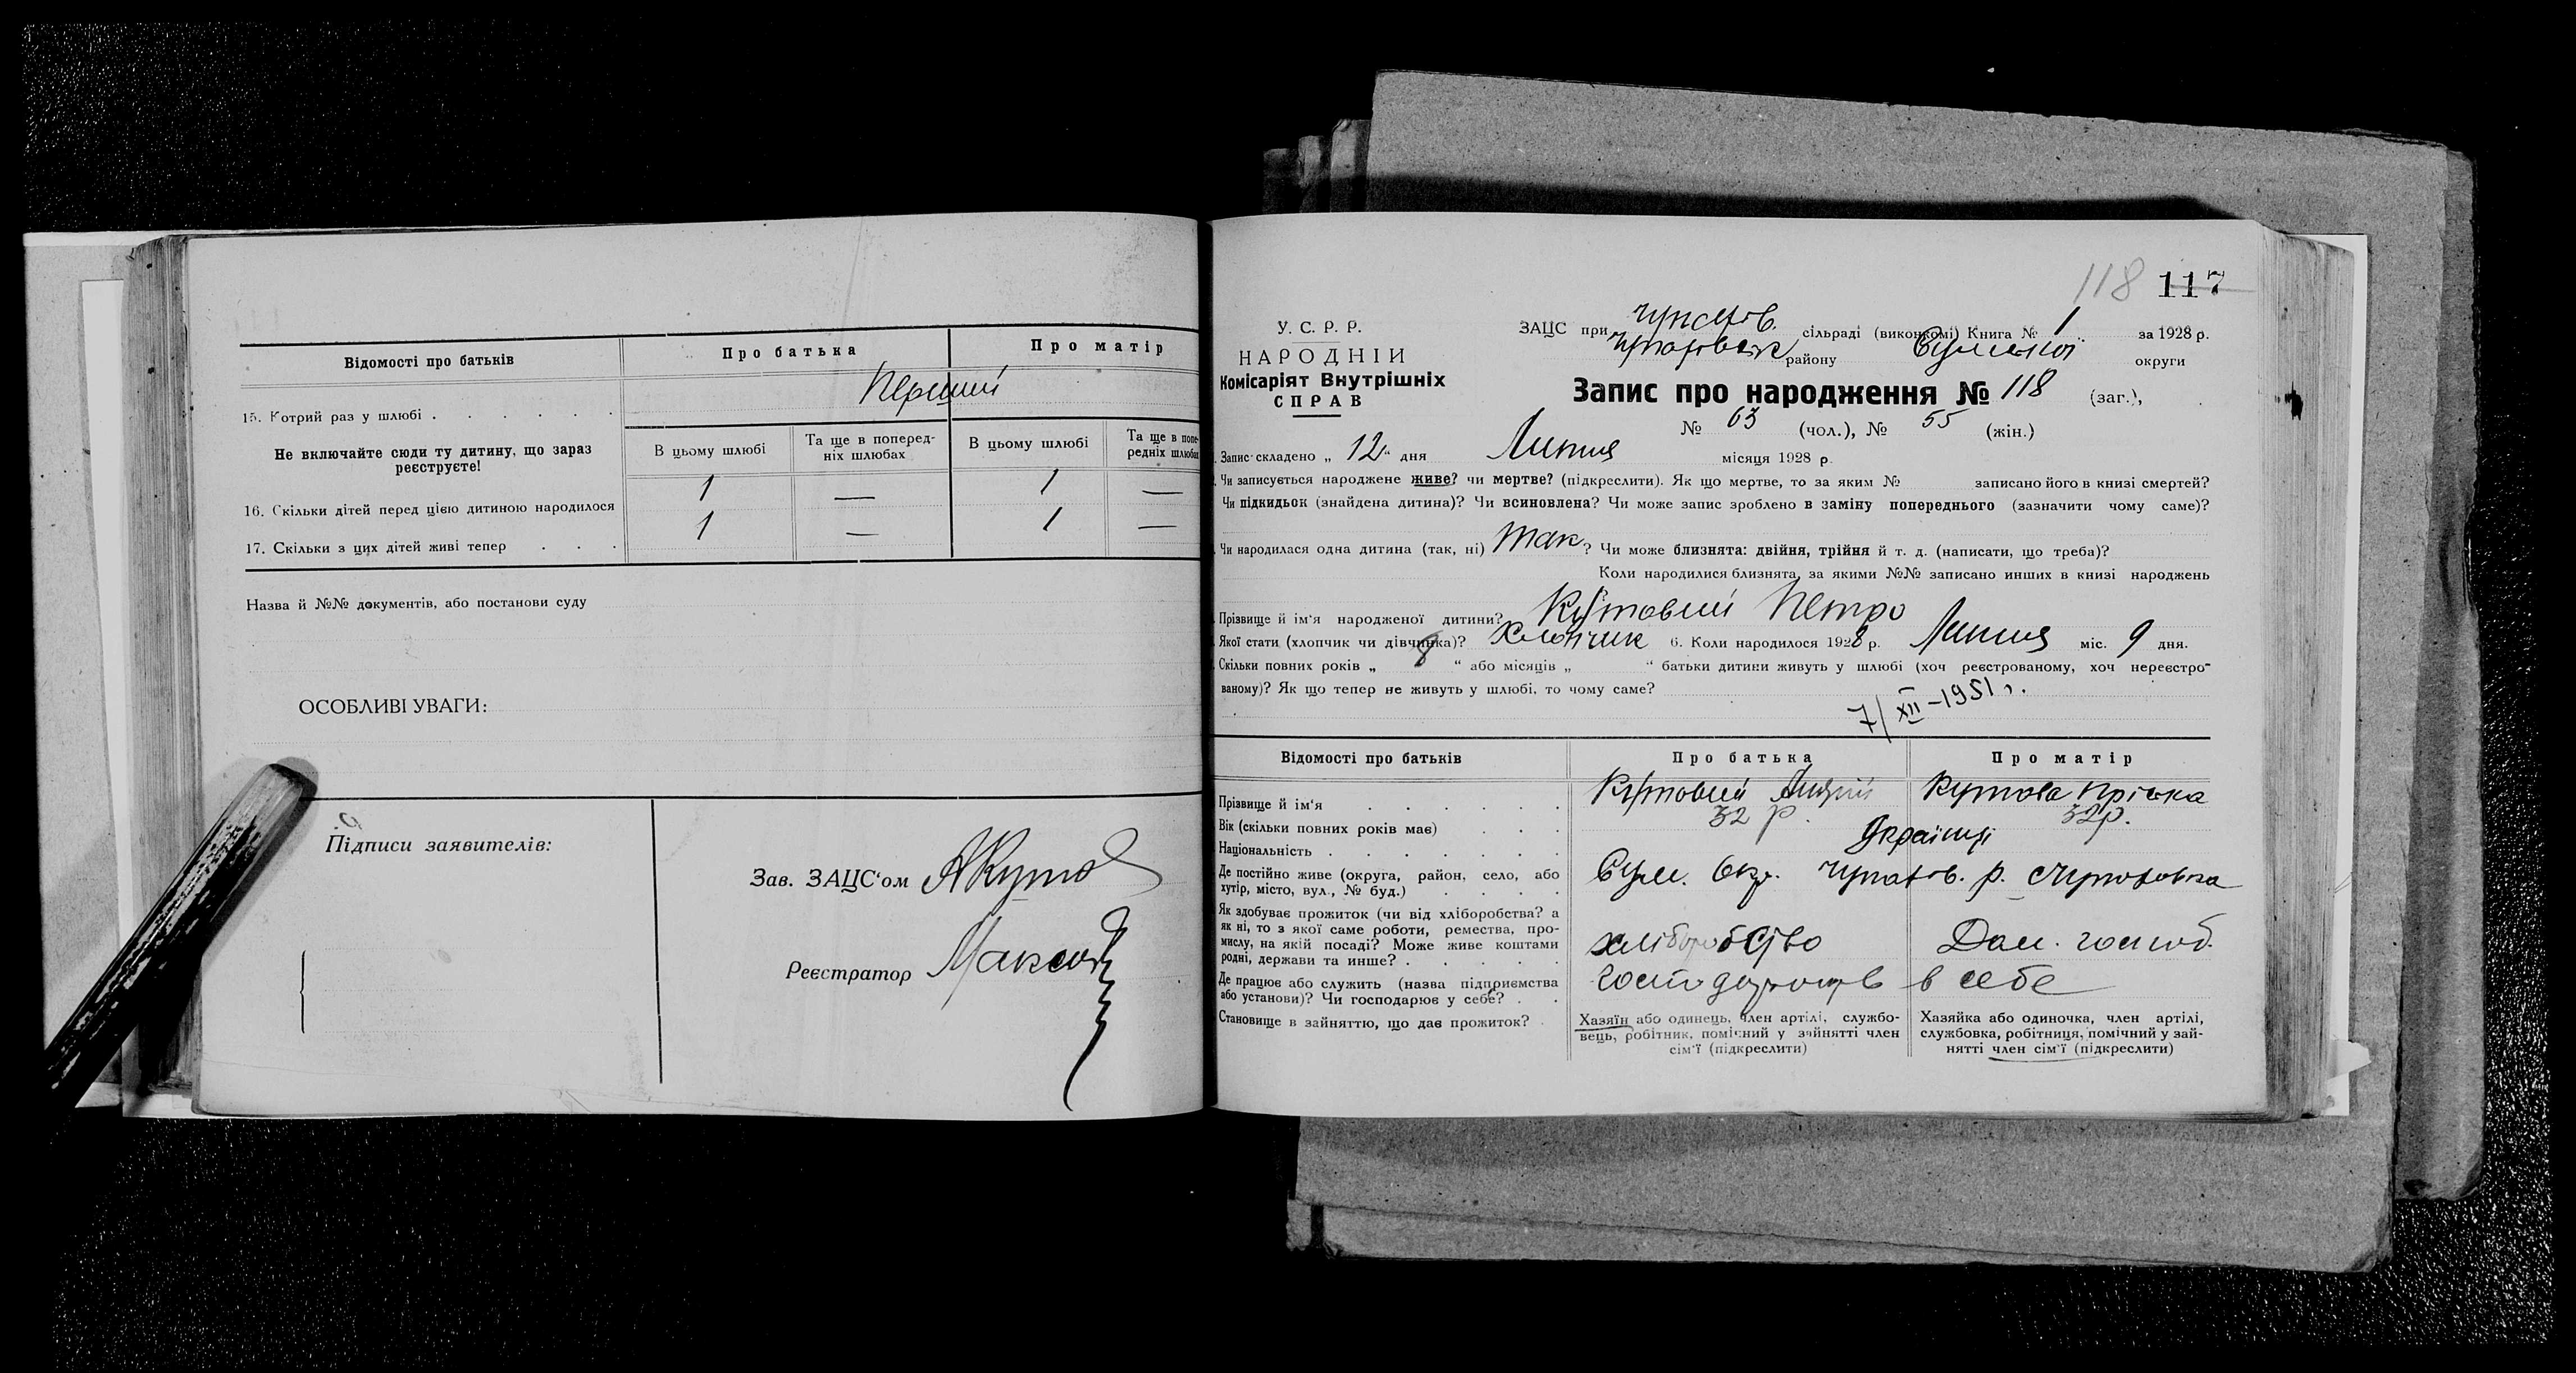 Відомості про батьків
Про батька
Про матір
15. Котрий раз у шлюбі . . . . . .
Перший
Не включайте сюди ту дитину, що зараз реєструєте!
В цьому шлюбі
Та ще в попередніх шлюбах
В цьому шлюбі
Та ще в попередніх шлюбах
16. Скільки дітей перед цією дитиною народилося 1 — 1 —
17. Скільки з цих дітей живі тепер . . . 1 — 1 —
Назва й №№ документів, або постанови суду
ОСОБЛИВІ УВАГИ:
Підписи заявителів:
Зав. ЗАЦС'ом АКутов
Реєстратор
118 117
У. С. Р. Р.
НАРОДНІЙ
Комісаріят Внутрішніх
СПРАВ
ЗАЦС при сільраді (виконкомі) Книга № 1 за 1928 р.
району Сумської округи
Запис про народження № 118 (заг.),
№ 63 (чол.), № 55 (жін.)
Запис складено „ 12 “ дня Липня місяця 1928 р.
Чи записується народжене живе? чи мертве? (підкреслити). Як що мертве, то за яким № записано його в книзі смертей?
Чи підкидьок (знайдена дитина)? Чи всиновлена? Чи може запис зроблено в заміну попереднього (зазначити чому саме)?
Чи народилася одна дитина (так, ні) так ? Чи може близнята: двійня, трійня й т. д. (написати, що треба)?
Коли народилися близнята, за якими №№ записано инших в книзі народжень
Прізвище й ім'я народженої дитини? Кутовий Петро
Якої стати (хлопчик чи дівчинка)? Хлопчик 6. Коли народилося 1928 р. Липня міс. 9 дня.
Скільки повних років „ 8 “ або місяців „ “ батьки дитини живуть у шлюбі (хоч реєстрованому, хоч нереєстрованому)? Як що тепер не живуть у шлюбі, то чому саме?
7/XII-1951 г.
Відомості про батьків
Про батька
Про матір
Прізвище й ім'я . . . . . . Кутовий Андрій Кутова Пріська
Вік (скільки повних років має) . . . 32 р. 32 р.
Національність . . . . . . . Українці
Де постійно живе (округа, район, село, або
хутір, місто, вул., № буд.) . . . .
Сум. Окр. р.
Як здобуває прожиток (чи від хліборобства? а
як ні, то з якої саме роботи, ремества, про-
мислу, на якій посаді? Може живе коштами
родні, держави та инше? . . . . .
хліборобство Дом. господ.
Де працює або служить (назва підприємства
або установи)? Чи господарює у себе? . .
в себе
Становище в зайняттю, що дає прожиток? .
Хазяїн або одинець, член артілі, службо-
вець, робітник, помічний у зайнятті член
сім'ї (підкреслити)
Хазяйка або одиночка, член артілі,
службовка, робітниця, помічний у зай-
нятті член сім'ї (підкреслити)